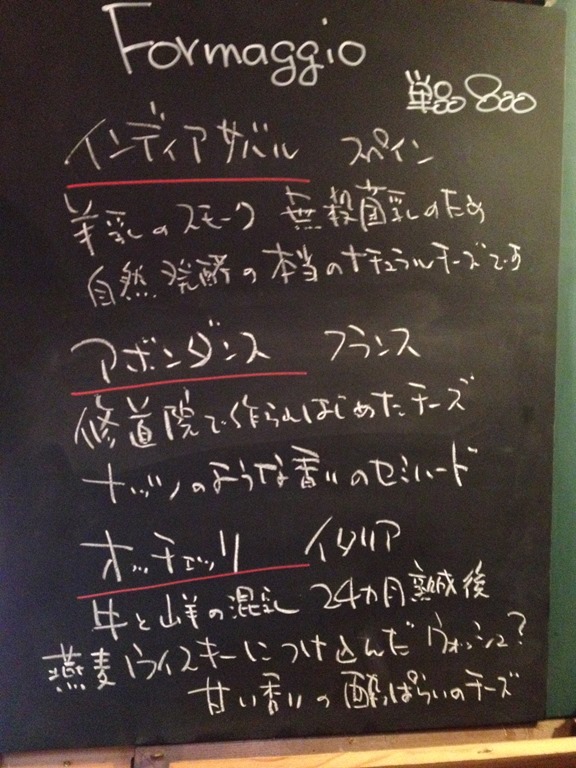 Formaggio
単品 800
インディアサバル スペイン
羊乳のスモーク 無殺菌乳のため
自然発酵の本当のナチュラルチーズです
アボンダンス フランス
修道院で作られはじめたチーズ
ナッツのような香りのセミハード
オッチェッリ イタリア
牛と山羊の混乳 24カ月熟成後
燕麦ウイスキーにつけ込んだウォッシュ?
甘い香りの酔っぱらいのチーズ